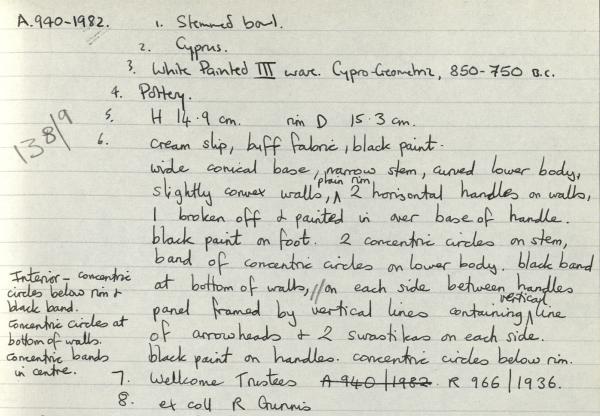 A.940-1982. 1. Stemmed bowl.
2. Cyprus.
3. White Painted III ware. Cypro-Geometric, 850-750 B.C.
4. Pottery.
5. H 14.9 cm. rim D 15.3 cm.
138/9
6. cream slip, buff fabric, black paint.
wide conical base, narrow stem, curved lower body,
slightly convex walls, plain rim, 2 horizontal handles on walls,
1 broken off & painted in over base of handle.
black paint on foot. 2 concentric circles on stem,
band of concentric circles on lower body. black band
at bottom of walls, // on each side between handles
panel framed by vertical lines containing vertical line
of arrowheads & 2 swastikas on each side.
black paint on handles. concentric circles below rim.
Interior - concentric
circles below rim &
black band.
concentric circles at
bottom of walls.
concentric bands
in centre.
7. Wellcome Trustees A 940/1982. R 966/1936.
8. ex coll R Gunnis